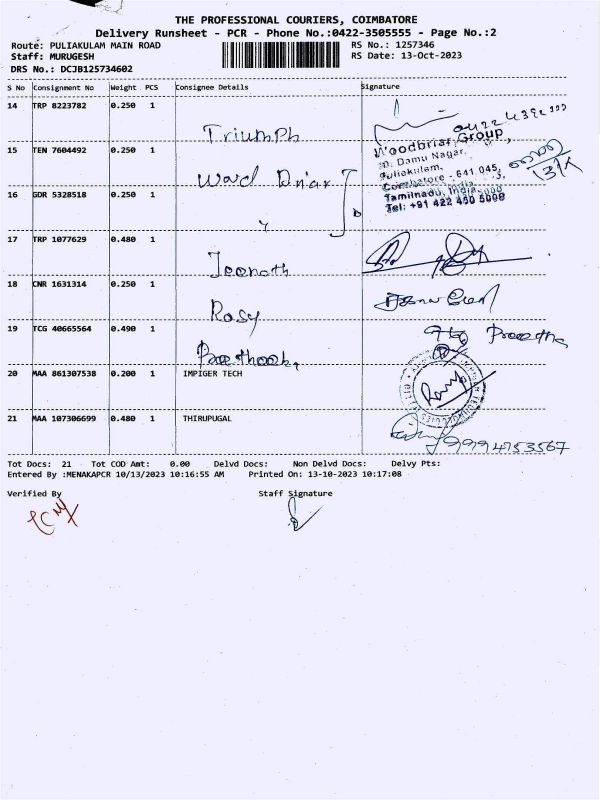 THE PROFESSIONAL COURIERS, COIMBATORE
Delivery Runsheet - PCR - Phone No.:0422-3505555 - Page No.:2
Route: PULIAKULAM MAIN ROAD RS No.: 1257346
Staff: MURUGESH RS Date: 13-Oct-2023
DRS No.: DCJB125734602
S No Consignment No Weight. PCS Consignee Details Signature
14 TRP 8223782 0.250 1 Triumph
15 TEN 7604492 0.250 1
Woodbriar Group
Damu Nagar,
Puliakulam,
Coimbatore - 641 045,
Tamilnadu, India
Tel: +91 422 450 5000
16 GDR 5328518 0.250 1
17 TRP 1077629 0.480 1
18 CNR 1631314 0.250 1 Rosy
19 TCG 40665564 0.490 1 Preetha
20 MAA 861307538 0.200 1 IMPIGER TECH
21 MAA 107306699 0.480 1 THIRUPUGAL 9994753567
Tot Docs: 21 Tot COD Amt: 0.00 Delvd Docs: Non Delvd Docs: Delvy Pts:
Entered By :MENAKAPCR 10/13/2023 10:16:55 AM Printed On: 13-10-2023 10:17:08
Verified By Staff Signature